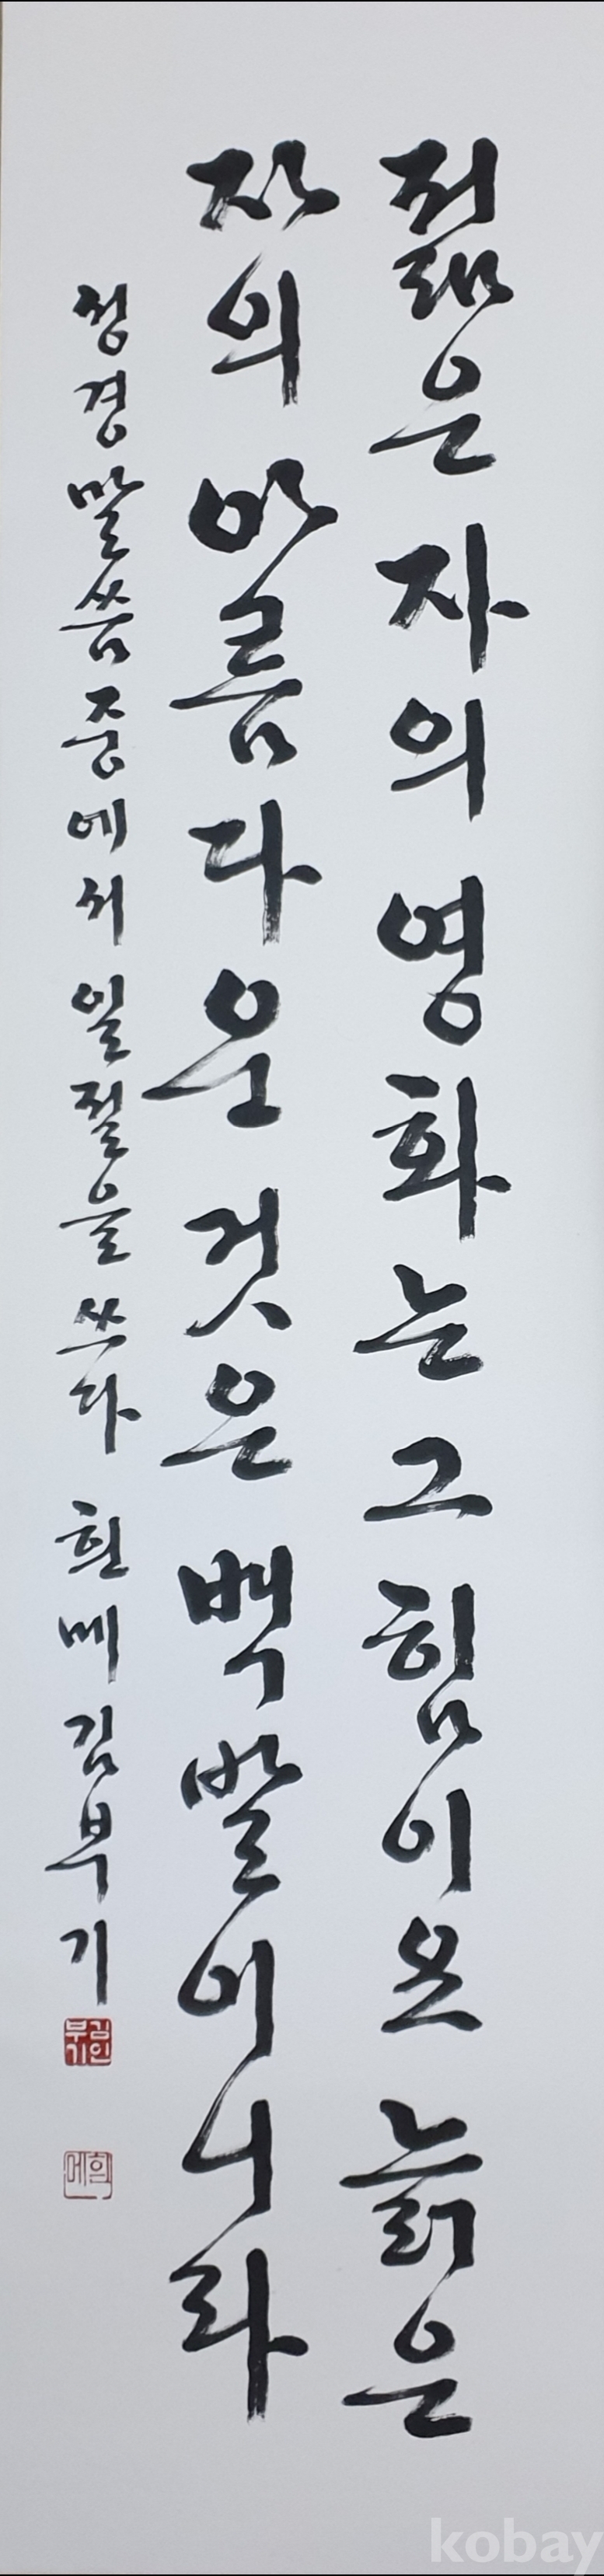 젊은 자의 영화는 그 힘이요 늙은
자의 아름다운 것은 백발이니라
성경말씀 중에서 일절을 쓰다 흰메 김부기
김부기인
흰메
kobay